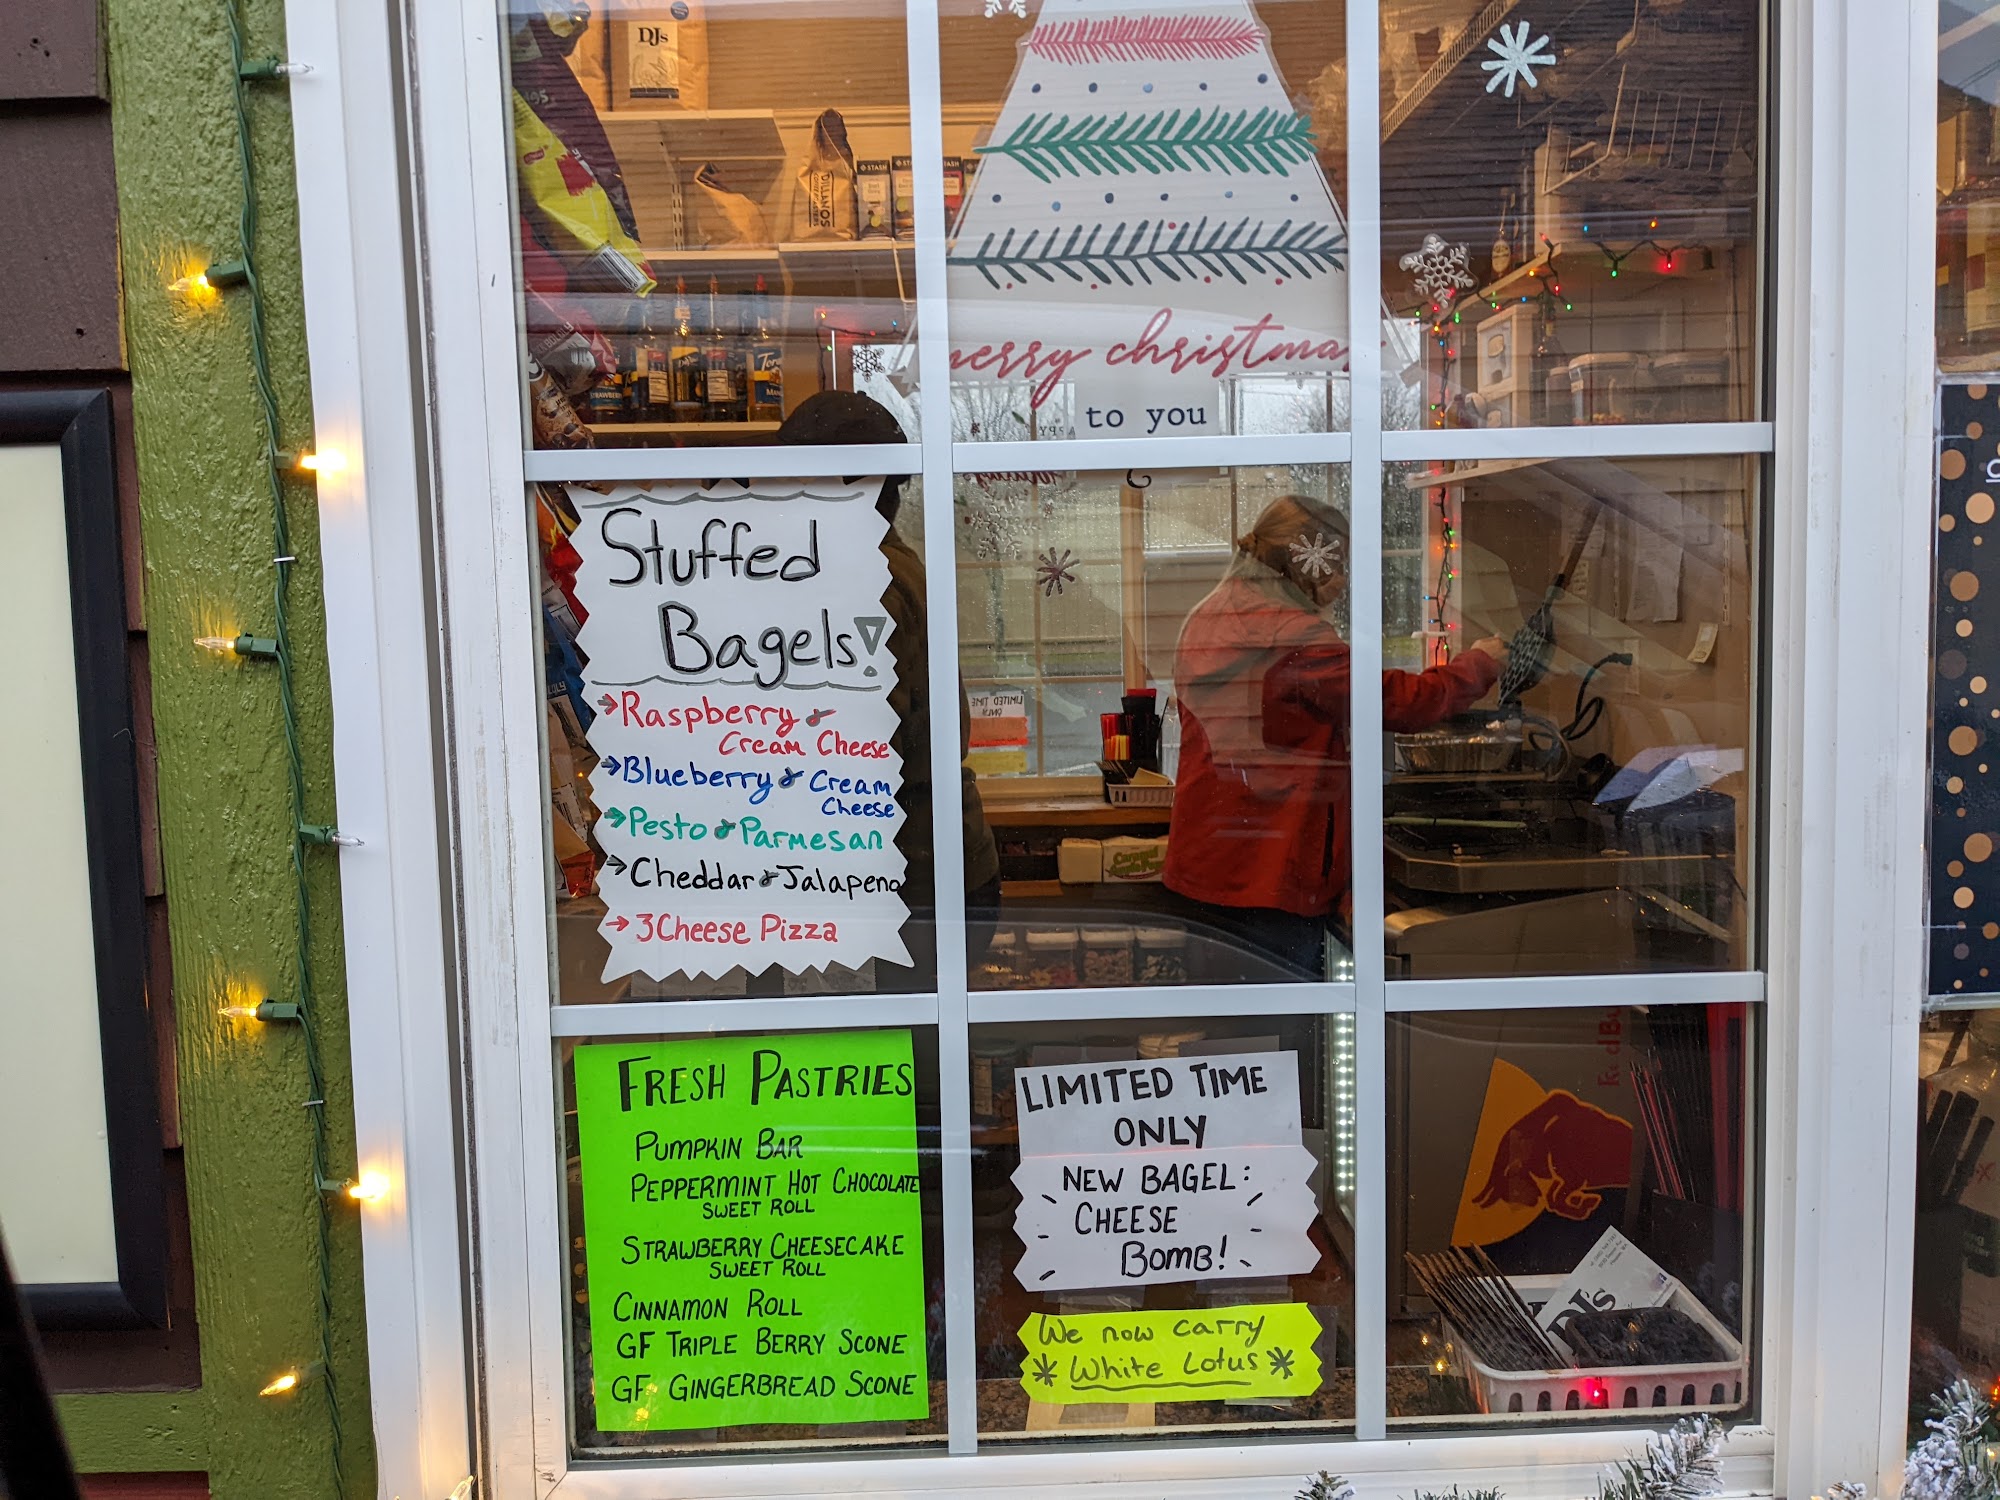 DJs
STASH
DILLANOS
merry christmas
to you
Stuffed
Bagels!
→Raspberry &
Cream Cheese
→Blueberry & Cream
Cheese
→Pesto & Parmesan
→Cheddar & Jalapeno
→3 Cheese Pizza
LIMITED TIME
ONLY!
FRESH PASTRIES
PUMPKIN BAR
PEPPERMINT HOT CHOCOLATE
SWEET ROLL
STRAWBERRY CHEESECAKE
SWEET ROLL
CINNAMON ROLL
GF TRIPLE BERRY SCONE
GF GINGERBREAD SCONE
LIMITED TIME
ONLY
NEW BAGEL:
CHEESE
BOMB!
We now carry
White Lotus
RedBu
DJ's